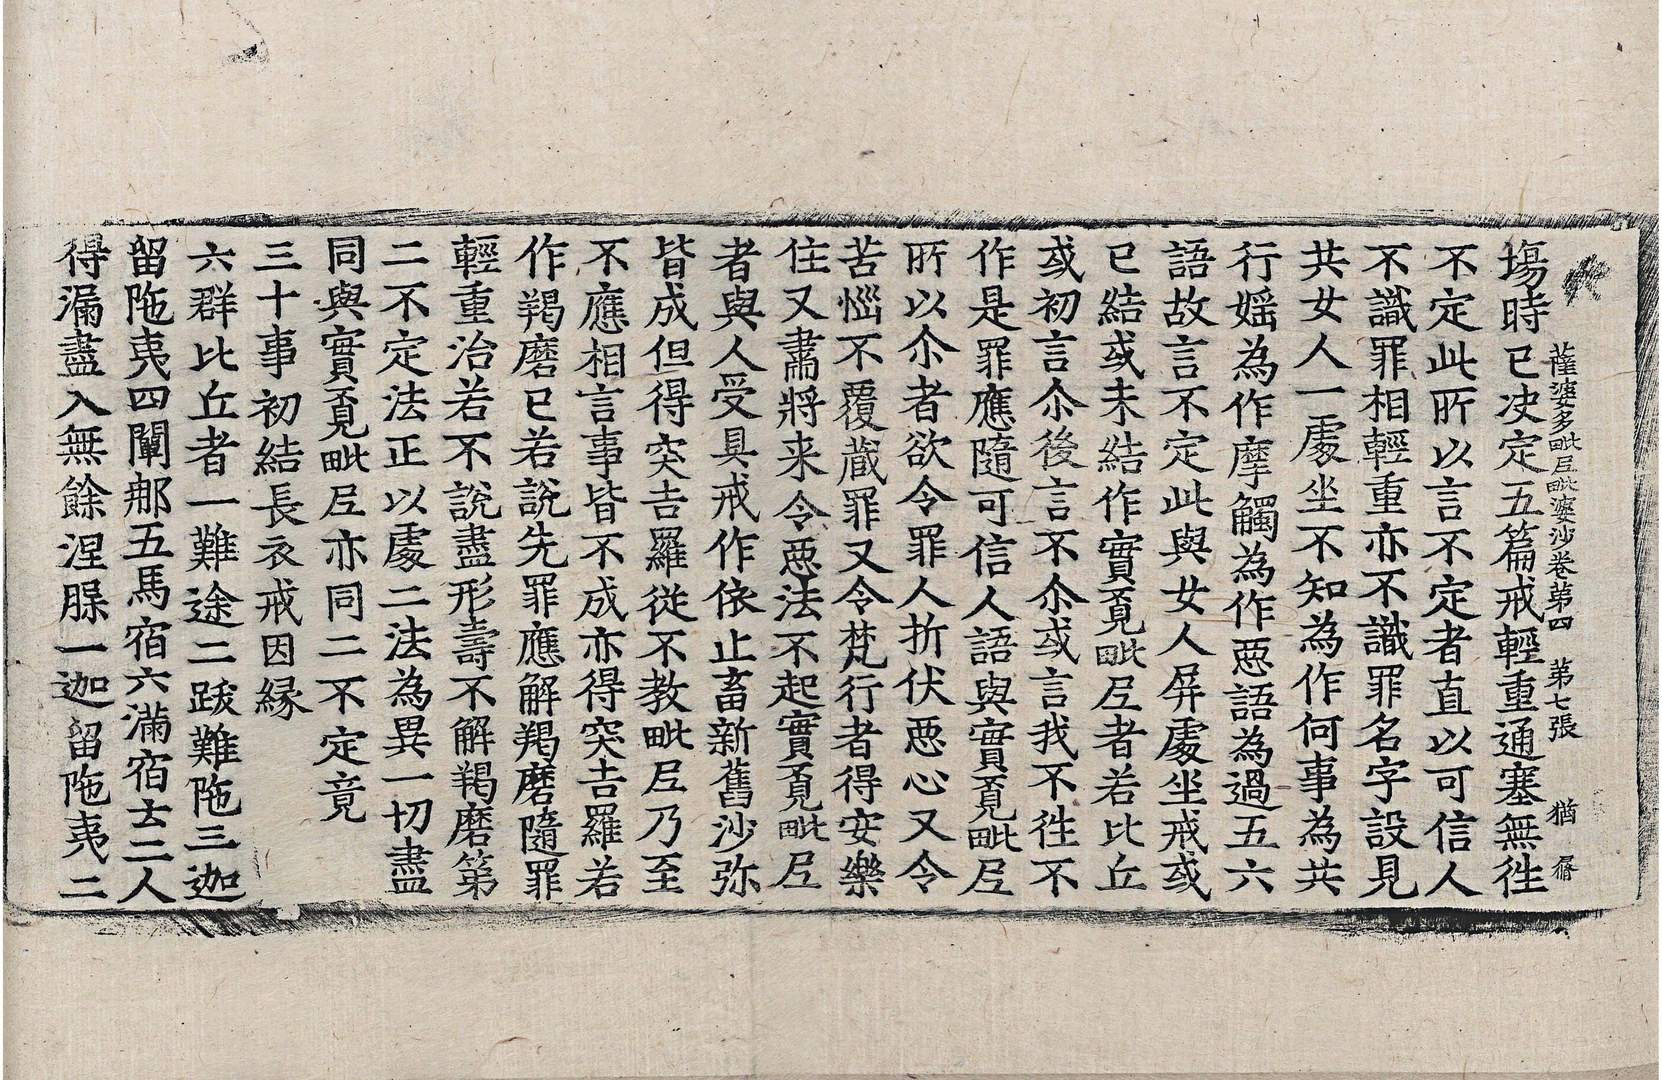 薩婆多毗尼毗婆沙卷第四　第七張　猶　㞕
塲時已决定五篇戒輕重通塞無徃
不定此所以言不定者直以可信人
不識罪相輕重亦不識罪名字設見
共女人一處坐不知為作何事為共
行婬為作摩觸為作惡語為過五六
語故言不定此與女人屏處坐戒或
已結或未結作實覔毗尼者若比丘
或初言尒後言不尒或言我不徃不
作是罪應隨可信人語與實覔毗尼
所以尒者欲令罪人折伏惡心又令
苦惱不覆蔵罪又令梵行者得安樂
住又肅將来令惡法不起實覔毗尼
者與人受具戒作依止畜新舊沙弥
皆成但得突吉羅從不教毗尼乃至
不應相言事皆不成亦得突吉羅若
作羯磨已若說先罪應解羯磨隨罪
輕重治若不說盡形壽不解羯磨第
二不定法正以處二法為異一切盡
同與實覔毗尼亦同二不定竟
三十事初結長衣戒因縁
六群比丘者一難途二跋難陁三迦
留陁夷四闡那五馬宿六滿宿云二人
得漏盡入無餘涅槃一迦留陁夷二